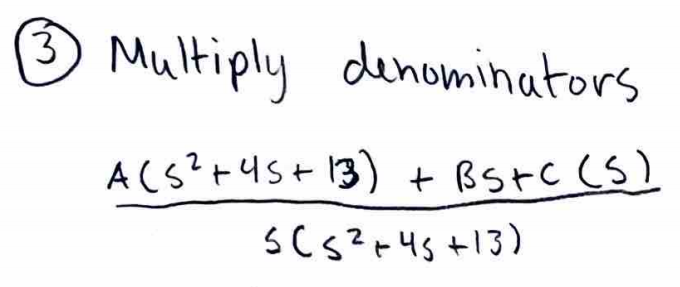 ③ Multiply denominators
A(s²+4s+13) + Bs+C (s)
s(s²+4s+13)